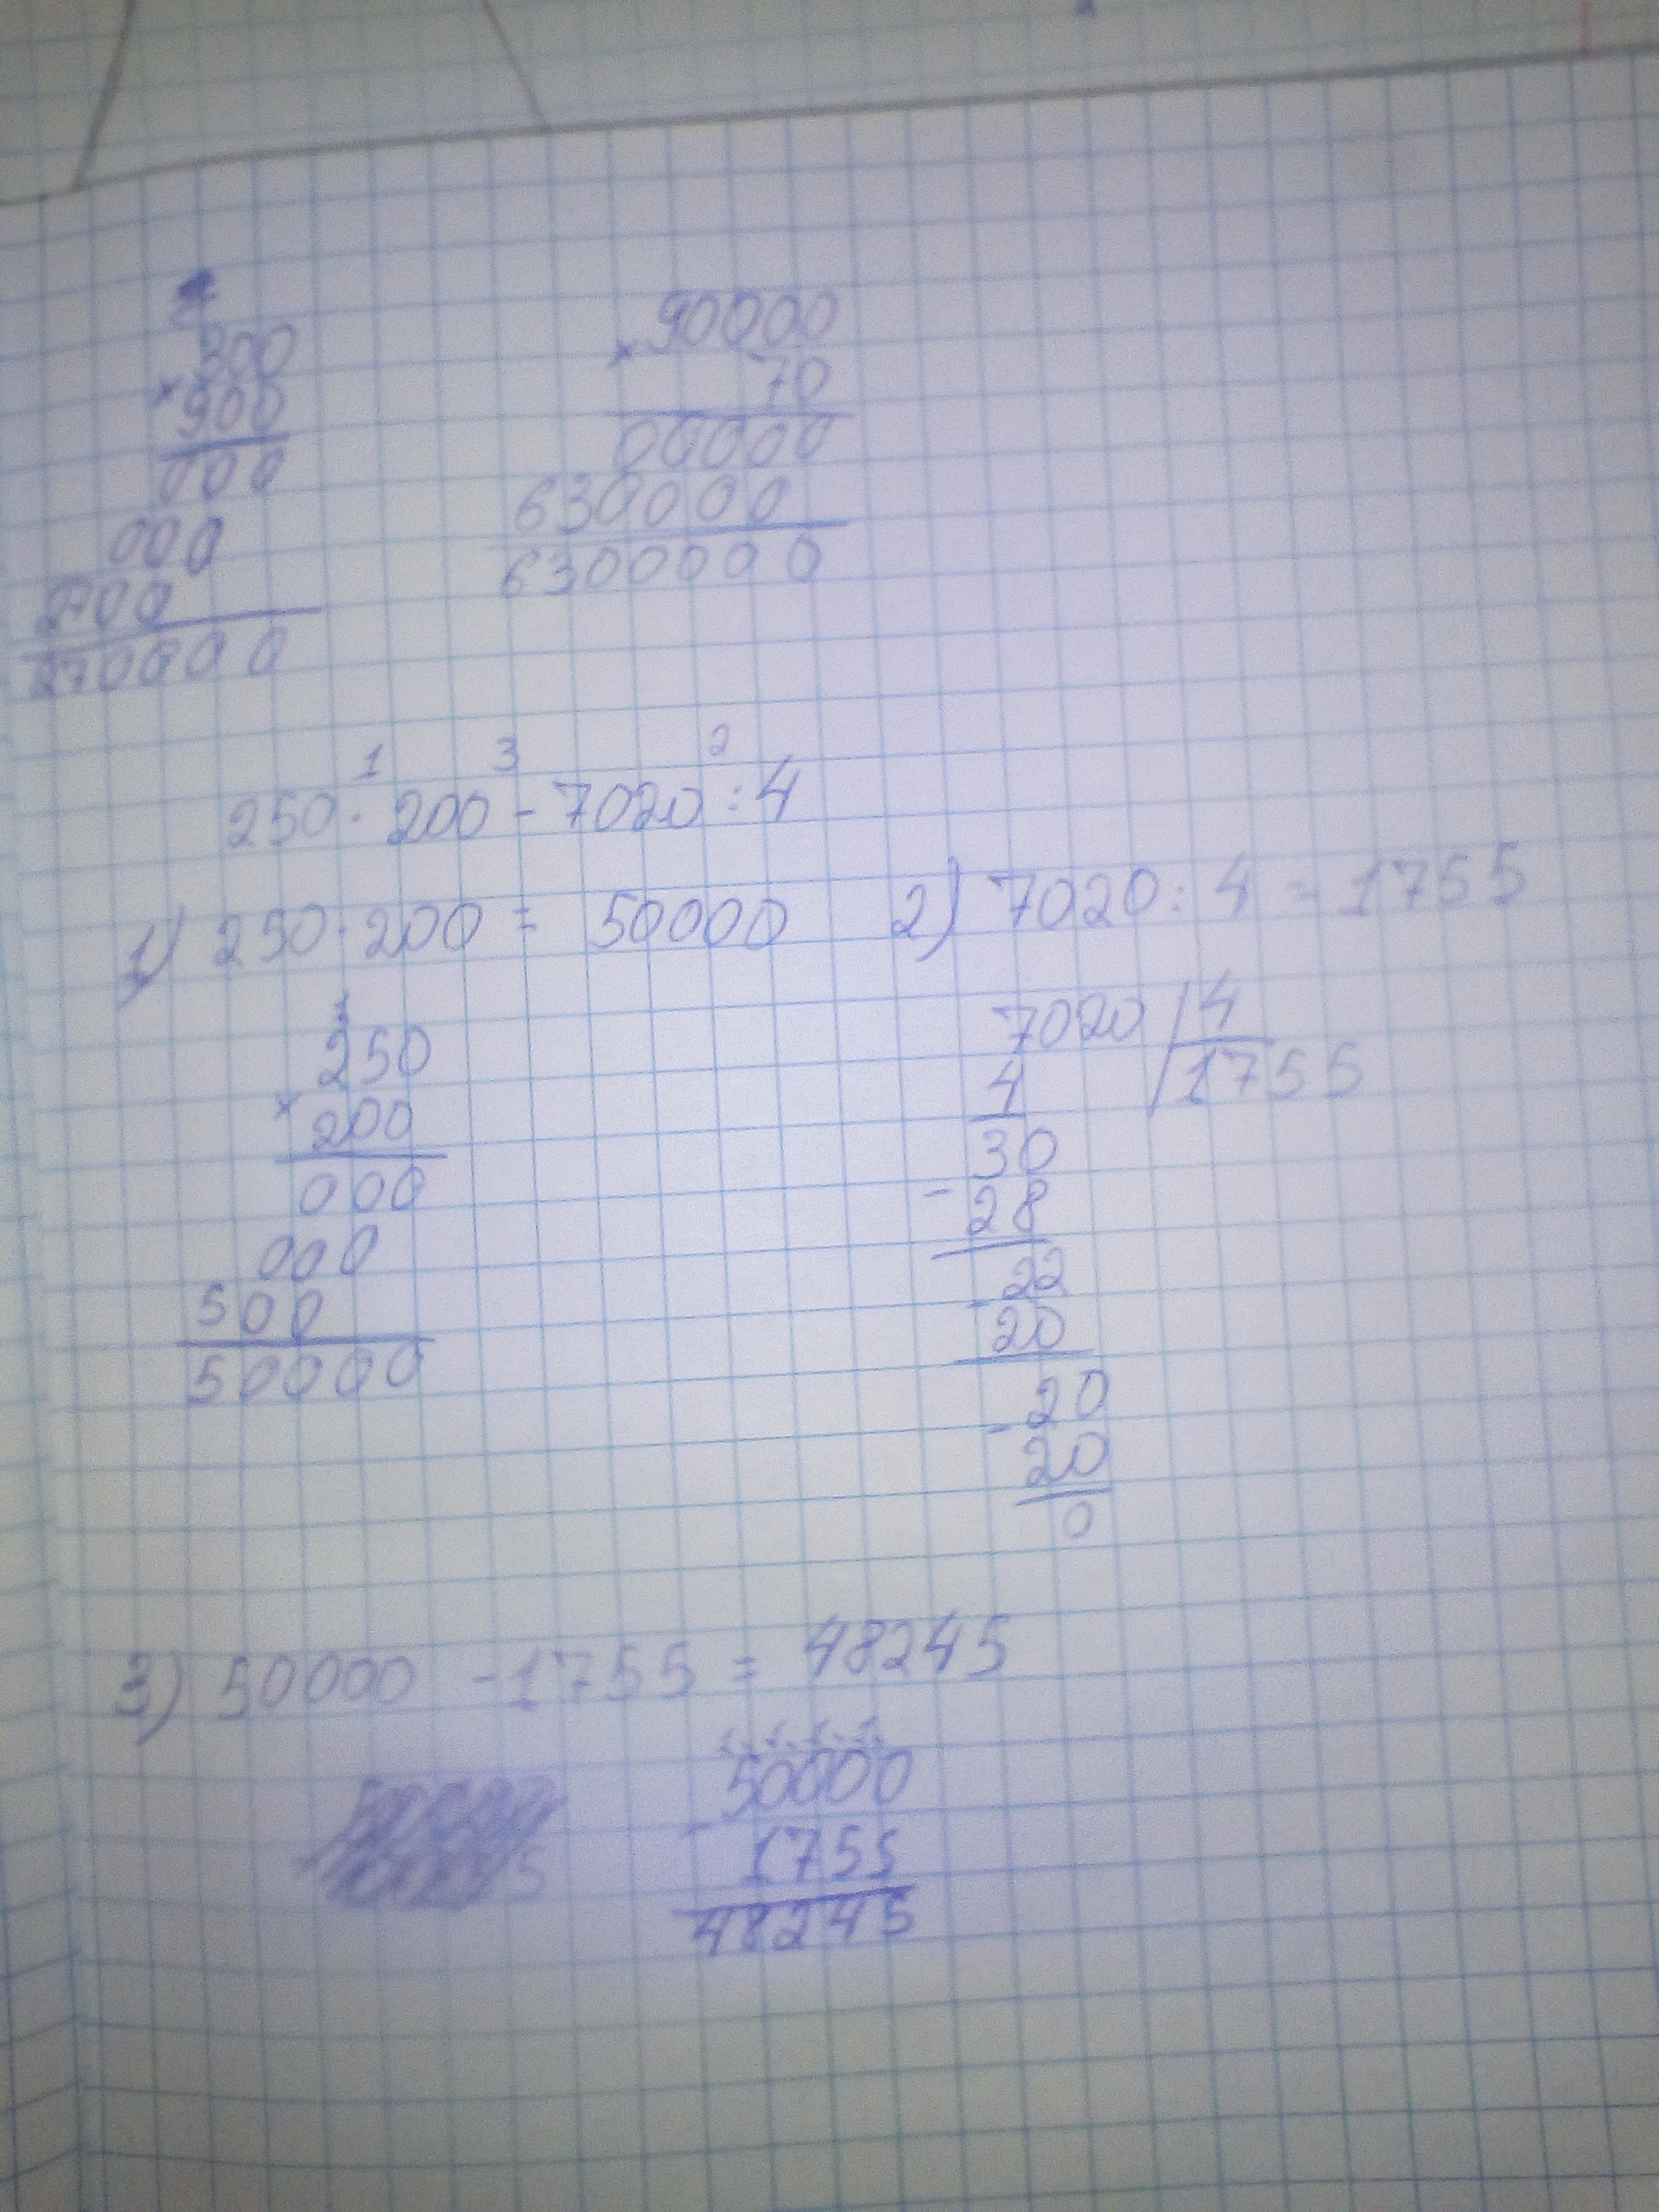 300
× 900
000
000
2700
270000
90000
× 70
00000
630000
6300000
1 3 2
250 · 200 - 7020 : 4
1) 250 · 200 = 50000
250
× 200
000
000
500
50000
2) 7020 : 4 = 1755
7020 | 4
4 | 1755
30
- 28
22
- 20
20
- 20
0
3) 50000 - 1755 = 48245
50000
- 1755
48245